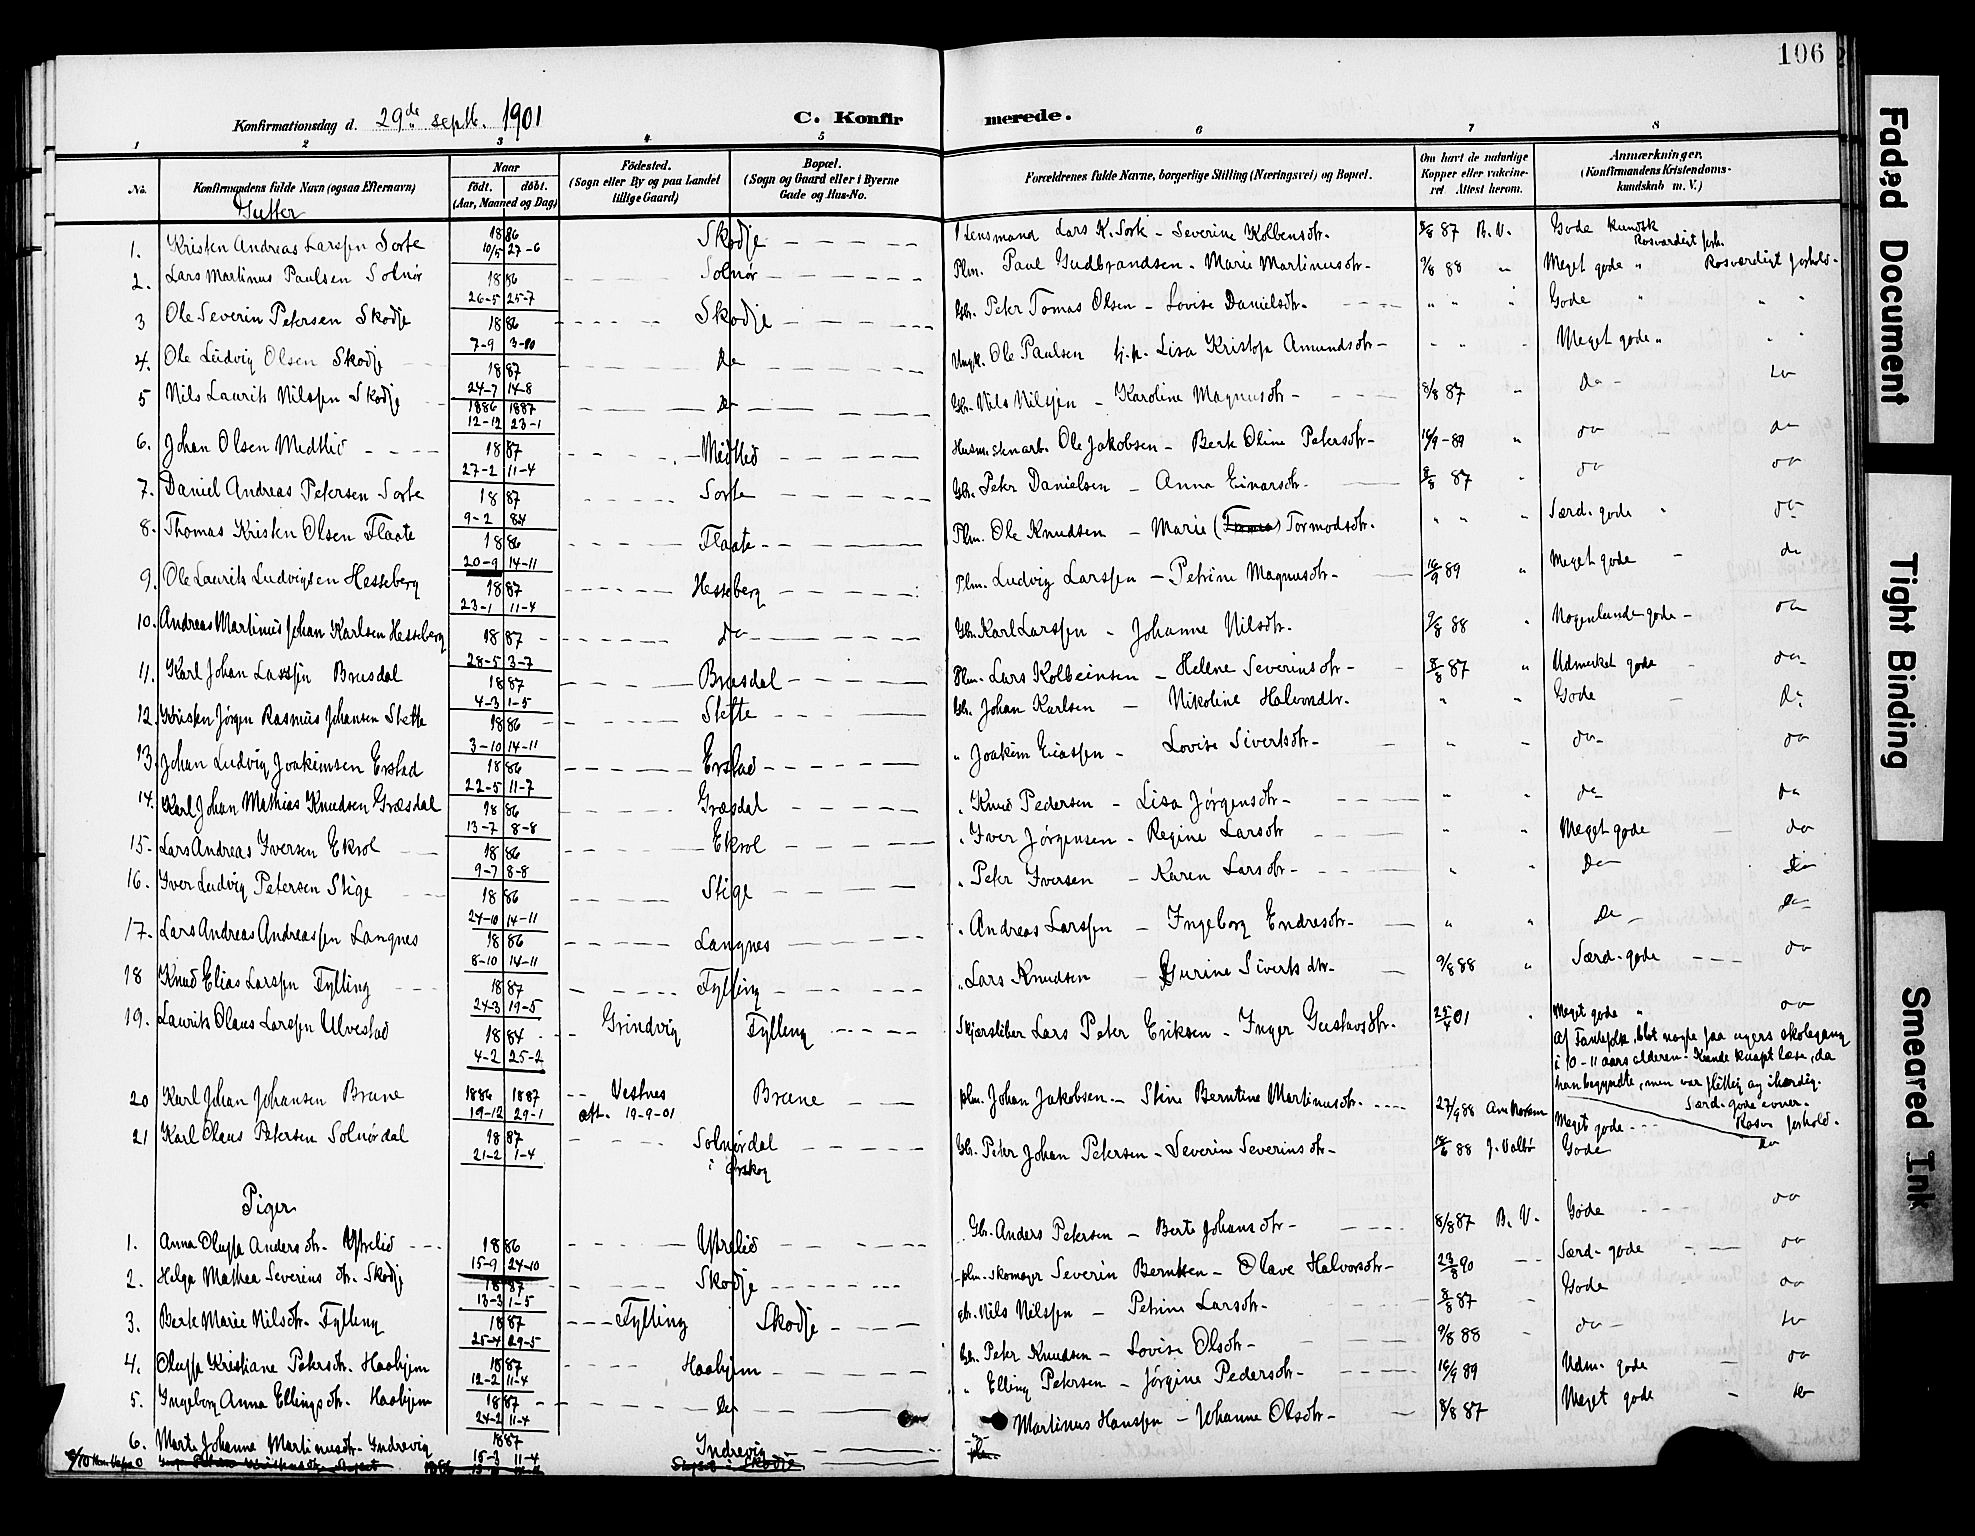 106
Konfirmationsdag d. 29de septb. 1901
C. Konfirmerede.
1 2 3 4 5 6 7 8
No. Konfirmandens fulde Navn (ogsaa Efternavn) Naar født. døbt. (Aar, Maaned og Dag) Födested. (Sogn eller By og paa Landet tillige Gaard) Bopæl. (Sogn og Gaard eller i Byerne Gade og Hus-No. Forældrenes fulde Navne, borgerlige Stilling (Næringsvei) og Bopæl. Om havt de naturlige Kopper eller vaccineret Attest herom. Anmærkninger, (Konfirmandens Kristendomskundskab m. V.)
Gutter
1. Kristen Andreas Larssen Sorte 1886 10/5 27-6 Skodje Lensmand Lars K. Sorte - Severine Kolbensdtr. 8/8 87 B.V. Gode kundsk Rosværdigt forh.
2. Lars Martinus Paulsen Solnør 1886 26-5 25-7 Solnør Plm. Paul Gudbrandsen - Marie Martinusdtr - 9/8 88 " Meget gode " Rosværdigt forhold -
3 Ole Severin Petersen Skodje 1886 7-9 3-10 Skodje Gbr. Peter Tomas Olsen - Lovise Danielsdtr. " " " Gode " " "
4. Ole Ludvig Olsen Skodje 1887 24-7 14-8 Do Ungk. Ole Paulsen Lisa Kristofa Amundsdtr - " " " Meget gode " " "
5 Nils Laurits Nilssen Skodje 1886 1887 12-12 23-1 Do Gbr. Nils Nilssen - Karoline Magnusdtr - 8/8 87 " Do - do
6. Johan Olsen Medtlid 1887 27-2 11-4 Medtlid Husm. Ole Jakobsen - Berte Oline Petersdtr - 16/9 - 89 " do do
7. Daniel Andreas Petersen Sorte 1887 9-2 Sorte Gbr. Peter Danielsen - Anna Einarsdtr - 8/8 87 " do do
8. Thomas Kristen Olsen Flaate 1886 20-9 14-11 Flaate Plm. Ole Knudsen - Marie Tormodsdtr. " " " Særd. gode " do
9. Ole Laurits Ludvigsen Hesseberg 1887 23-1 11-4 Hesseberg Plm. Ludvig Larssen - Petrine Magnusdtr - 16/9 89 " Meget gode - do
10. Andreas Martinus Johan Karlsen Hesseberg 1887 28-5 3-7 Do Gbr. Karl Larssen - Johanne Nilsdtr. 9/8 88 " Nogenlunde gode - do
11. Karl Johan Larssen Brusdal 1887 4-3 1-5 Brusdal Plm. Lars Kolbeinsen - Helene Severinsdtr - 8/8 87 " Udmerket gode do
12. Kristen Jörgen Rasmus Johansen Stette 1886 3-10 14-11 Stette Gbr. Johan Karlsen - Nikoline Halvorsdtr. " " Gode - Do
13. Johan Ludvig Joakimsen Erstad 1886 22-5 11-7 Erstad " Joakim Eliassen - Lovise Sivertsdtr - " " do - do
14. Karl Johan Mathias Knudsen Græsdal 1886 13-7 8-8 Græsdal " Knud Pedersen - Lisa Jörgensdtr - " " do do
15 - Lars Andreas Iversen Ekrol 1886 9-7 8-8 Ekrol " Iver Jörgensen - Regine Larsdtr " " Meget gode - do
16. Iver Ludvig Petersen Stige 1886 24-10 14-11 Stige " Peter Iversen - Karen Larsdtr - " " Do do
17. Lars Andreas Andreassen Langnes 1886 8-10 14-11 Langnes " Andreas Larssen - Ingeborg Endresdtr - " " Do - do
18 Knud Elias Larssen Fylling 1887 24-3 19-5 Fylling " Lars Knudsen - Gurine Siverts dtr - 9/8 88 " Særd. gode do
19. Laurits Olaus Larssen Ulvestad 1884 4-2 25-2 Grindvig Fylling Skjærsliber Lars Peter Eriksen - Inger Gustavsdtr. 25/4 01 " Meget gode " do
Af Fantefolk, blot nogle faa ugers skolegang
i 10-11 aars alderen - Kunde knapt læse, da
han begyndte, men var flittig og ihærdig.
Særd. gode evner.
20 Karl Johan Johansen Brune 1886 1887 19-12 29-1 Vestnes att. 19-9-01 Brune plm. Johan Jakobsen - Stine Berntine Martinusdtr. 27/9 88 Meget gode Rosv forhold.
21 Karl Olaus Petersen Solnørdal 1887 21-2 1-4 Solnørdal i Ørskog Gbr. Peter Johan Petersen - Severine Severinsdtr - 88 J. Valbø Gode do
Piger
1. Anna Oluffa Andersdtr. Ytrelid 1886 15-9 24-10 Ytrelid Gbr. Anders Petersen - Berte Johansdtr - 8/8 87 B.V. Gode do
2. Helga Mathea Severins dtr. Skodje 1887 13-3 1-5 Skodje plm. skomagr Severin Berntsen - Olave Halvorsdtr - 23/8 90 Særd. gode do
3. Berte Marie Nilsdtr. Fylling 1887 25-4 29-5 Fylling Skodje Gbr. Nils Nilssen - Petrine Larsdtr - 8/8 87 Gode do
4. Oluffa Kristiane Petersdtr. Haahjem 1887 12-2 11-4 Haahjem Gbr. Peter Knudsen - Lovise Olsdtr - 9/8 88 do - do
5. Ingeborg Anna Ellingsdtr. Haahjem 1887 24-2 11-4 Do " Elling Petersen - Jörgine Pedersdtr - 16/9 89 Udm. gode do
6. Marte Johanne Martinusdtr. Indrevig 1887 15-3 11-4 Indrevig Martinus Hanssen - Johanne Olsdtr - 8/8 87 Meget gode - do
Skodje
Faded Document
Tight Binding
Smeared Ink